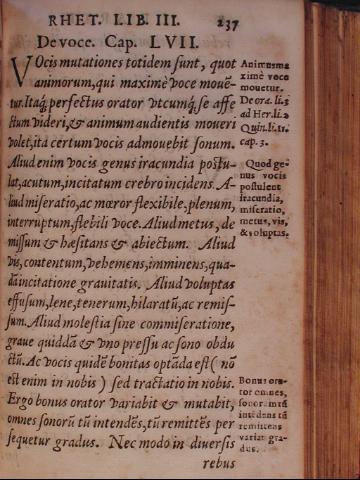 RHET. LIB. III. 237
De voce. Cap. LVII.
VOcis mutationes totidem sunt, quot
animorum, qui maximè voce mouē-
tur. Itaq; perfectus orator vtcumq; se affe
ctum videri, & animum audientis moueri
volet, ita certum vocis admouebit sonum.
Aliud enim vocis genus iracundia postu-
lat, acutum, incitatum crebro incidens. A-
liud miseratio, ac mœror flexibile, plenum,
interruptum, flebili voce. Aliud metus, de
missum & hæsitans & abiectum. Aliud
vis, contentum, vehemens, imminens, qua-
dā incitatione grauitatis. Aliud voluptas
effusum, lene, tenerum, hilaratū, ac remis-
sum. Aliud molestia sine commiseratione,
graue quiddā & vno pressu ac sono obdu
ctū. Ac vocis quidē bonitas optāda est (nō
est enim in nobis) sed tractatio in nobis.
Ergo bonus orator variabit & mutabit,
omnes sonorū tū intendēs, tū remittēs per
sequetur gradus. Nec modo in diuersis
rebus
Animus ma
ximè voce
mouetur.
De ora. li. 3
ad Her. li. 2
Quin. li. 11.
cap. 3.
Quod ge-
nus vocis
postulent
iracundia,
miseratio,
metus, vis,
& voluptas.
Bonus ora-
tor omnes,
sonorum tū
intēdens tū
remittens
variat gra-
dus.